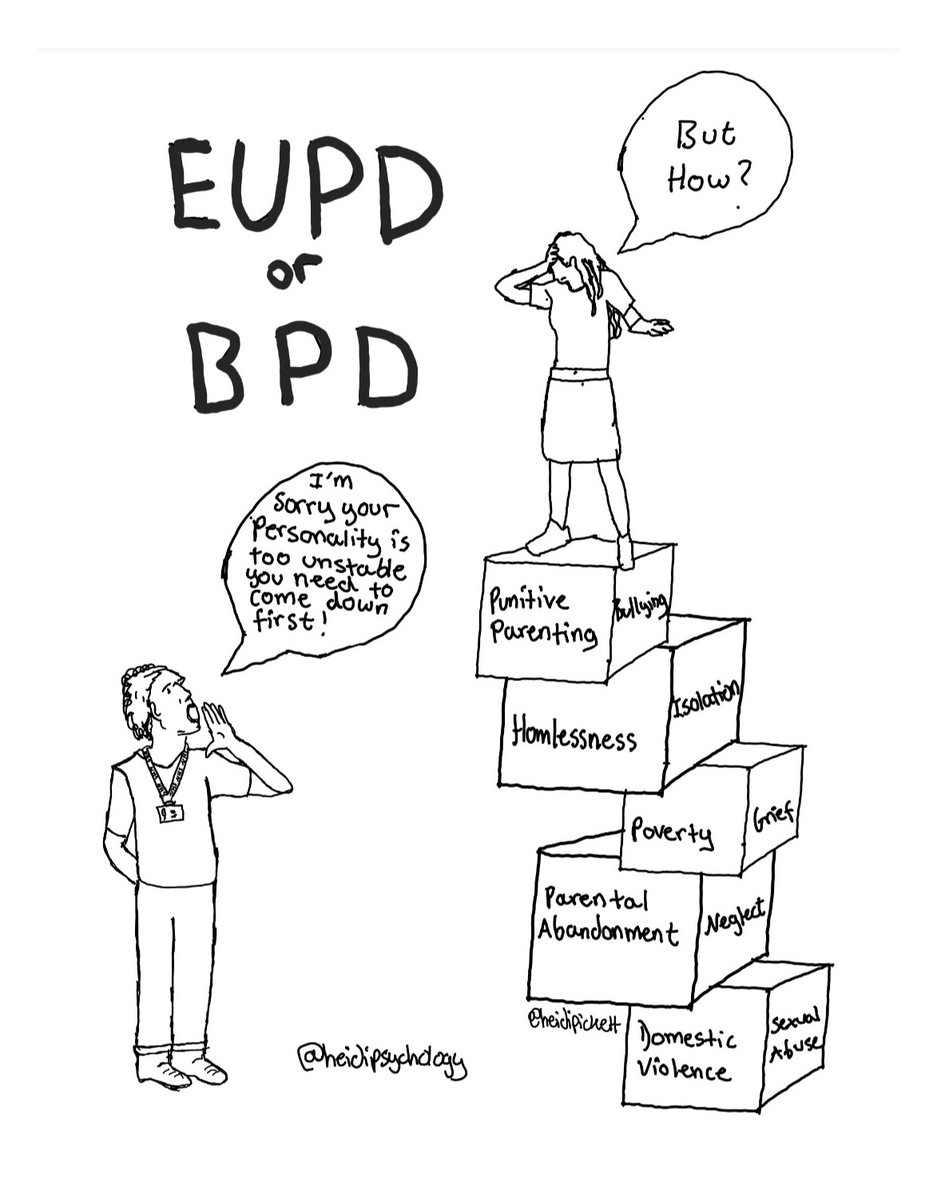 EUPD
or
BPD
But
How?
I'm
sorry your
Personality is
too unstable
you need to
come down
first!
Punitive
Parenting
Bullying
Homlessness
Isolation
Poverty
Grief
Parental
Abandonment
Neglect
@heidipickett
Domestic
Violence
Sexual
Abuse
@heidipsychology